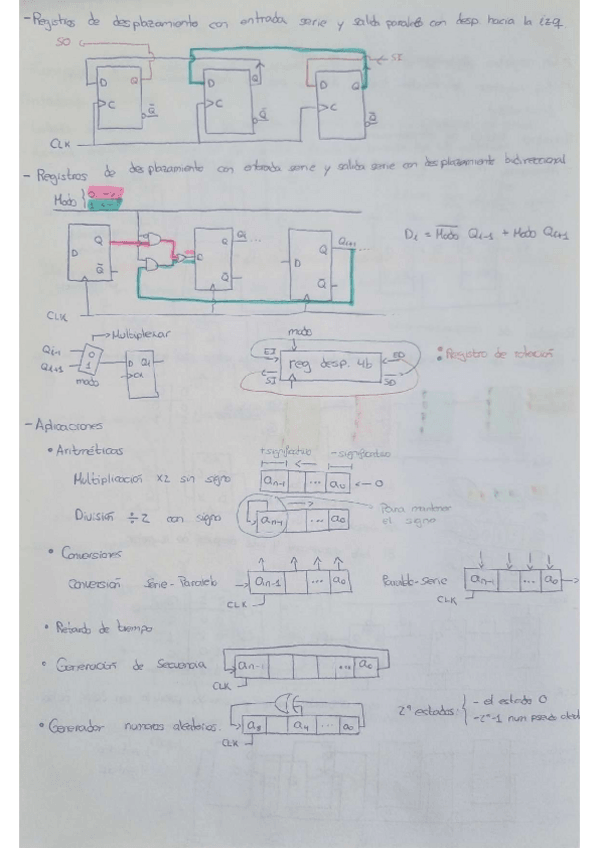 - Registros de desplazamiento con entrada serie y salida paralelo con desp. hacia la izq.
SO
SI
D Q
C
Q̅
D Q
C
Q̅
D Q
C
Q̅
CLK
- Registros de desplazamiento con entrada serie y salida serie con desplazamiento bidireccional
Modo { 0 →
1 ←
D Q
Q̅
D Q
Q̅
Qi ...
D Q
Q̅
Qi+1 ...
Di = M̅o̅d̅o̅ Qi-1 + Modo Qi+1
CLK
→ Multiplexor
Qi-1
Qi+1
0
1
modo
D Qi
CLK
modo
EI
SI
reg desp. 4b
ED
SD
• Registro de rotación
- Aplicaciones
• Aritméticas
+ significativo ← - significativo
Multiplicación x2 sin signo
an-1 ... a0 ← 0
División ÷2 con signo
an-1 ... a0
Para mantener
el signo
• Conversiones
Conversión Serie-Paralelo
an-1 ... a0
CLK
Paralelo-serie
an-1 ... a0
CLK
• Retardo de tiempo
• Generación de Secuencia
an-1 ... a0
CLK
• Generador numeros aleatorios.
a4 ... a0
CLK
2ⁿ estados: { - el estado 0
- 2ⁿ-1 num pseudo